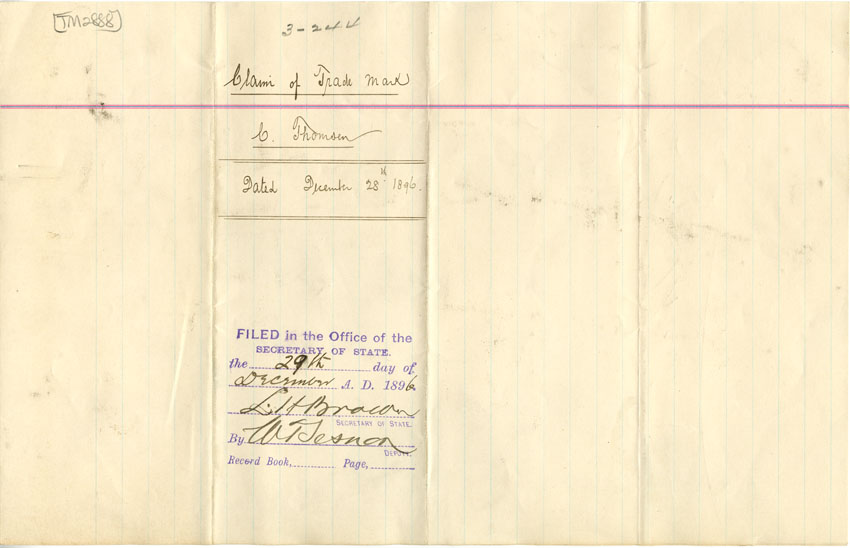 [TM2888]
3-244
Claim of Trade Mark
C. Thomsen
Dated December 28th 1896.
FILED in the Office of the
SECRETARY OF STATE.
the 29th day of
December A. D. 1896
L. H. Brown
SECRETARY OF STATE.
By
DEPUTY.
Record Book, Page,